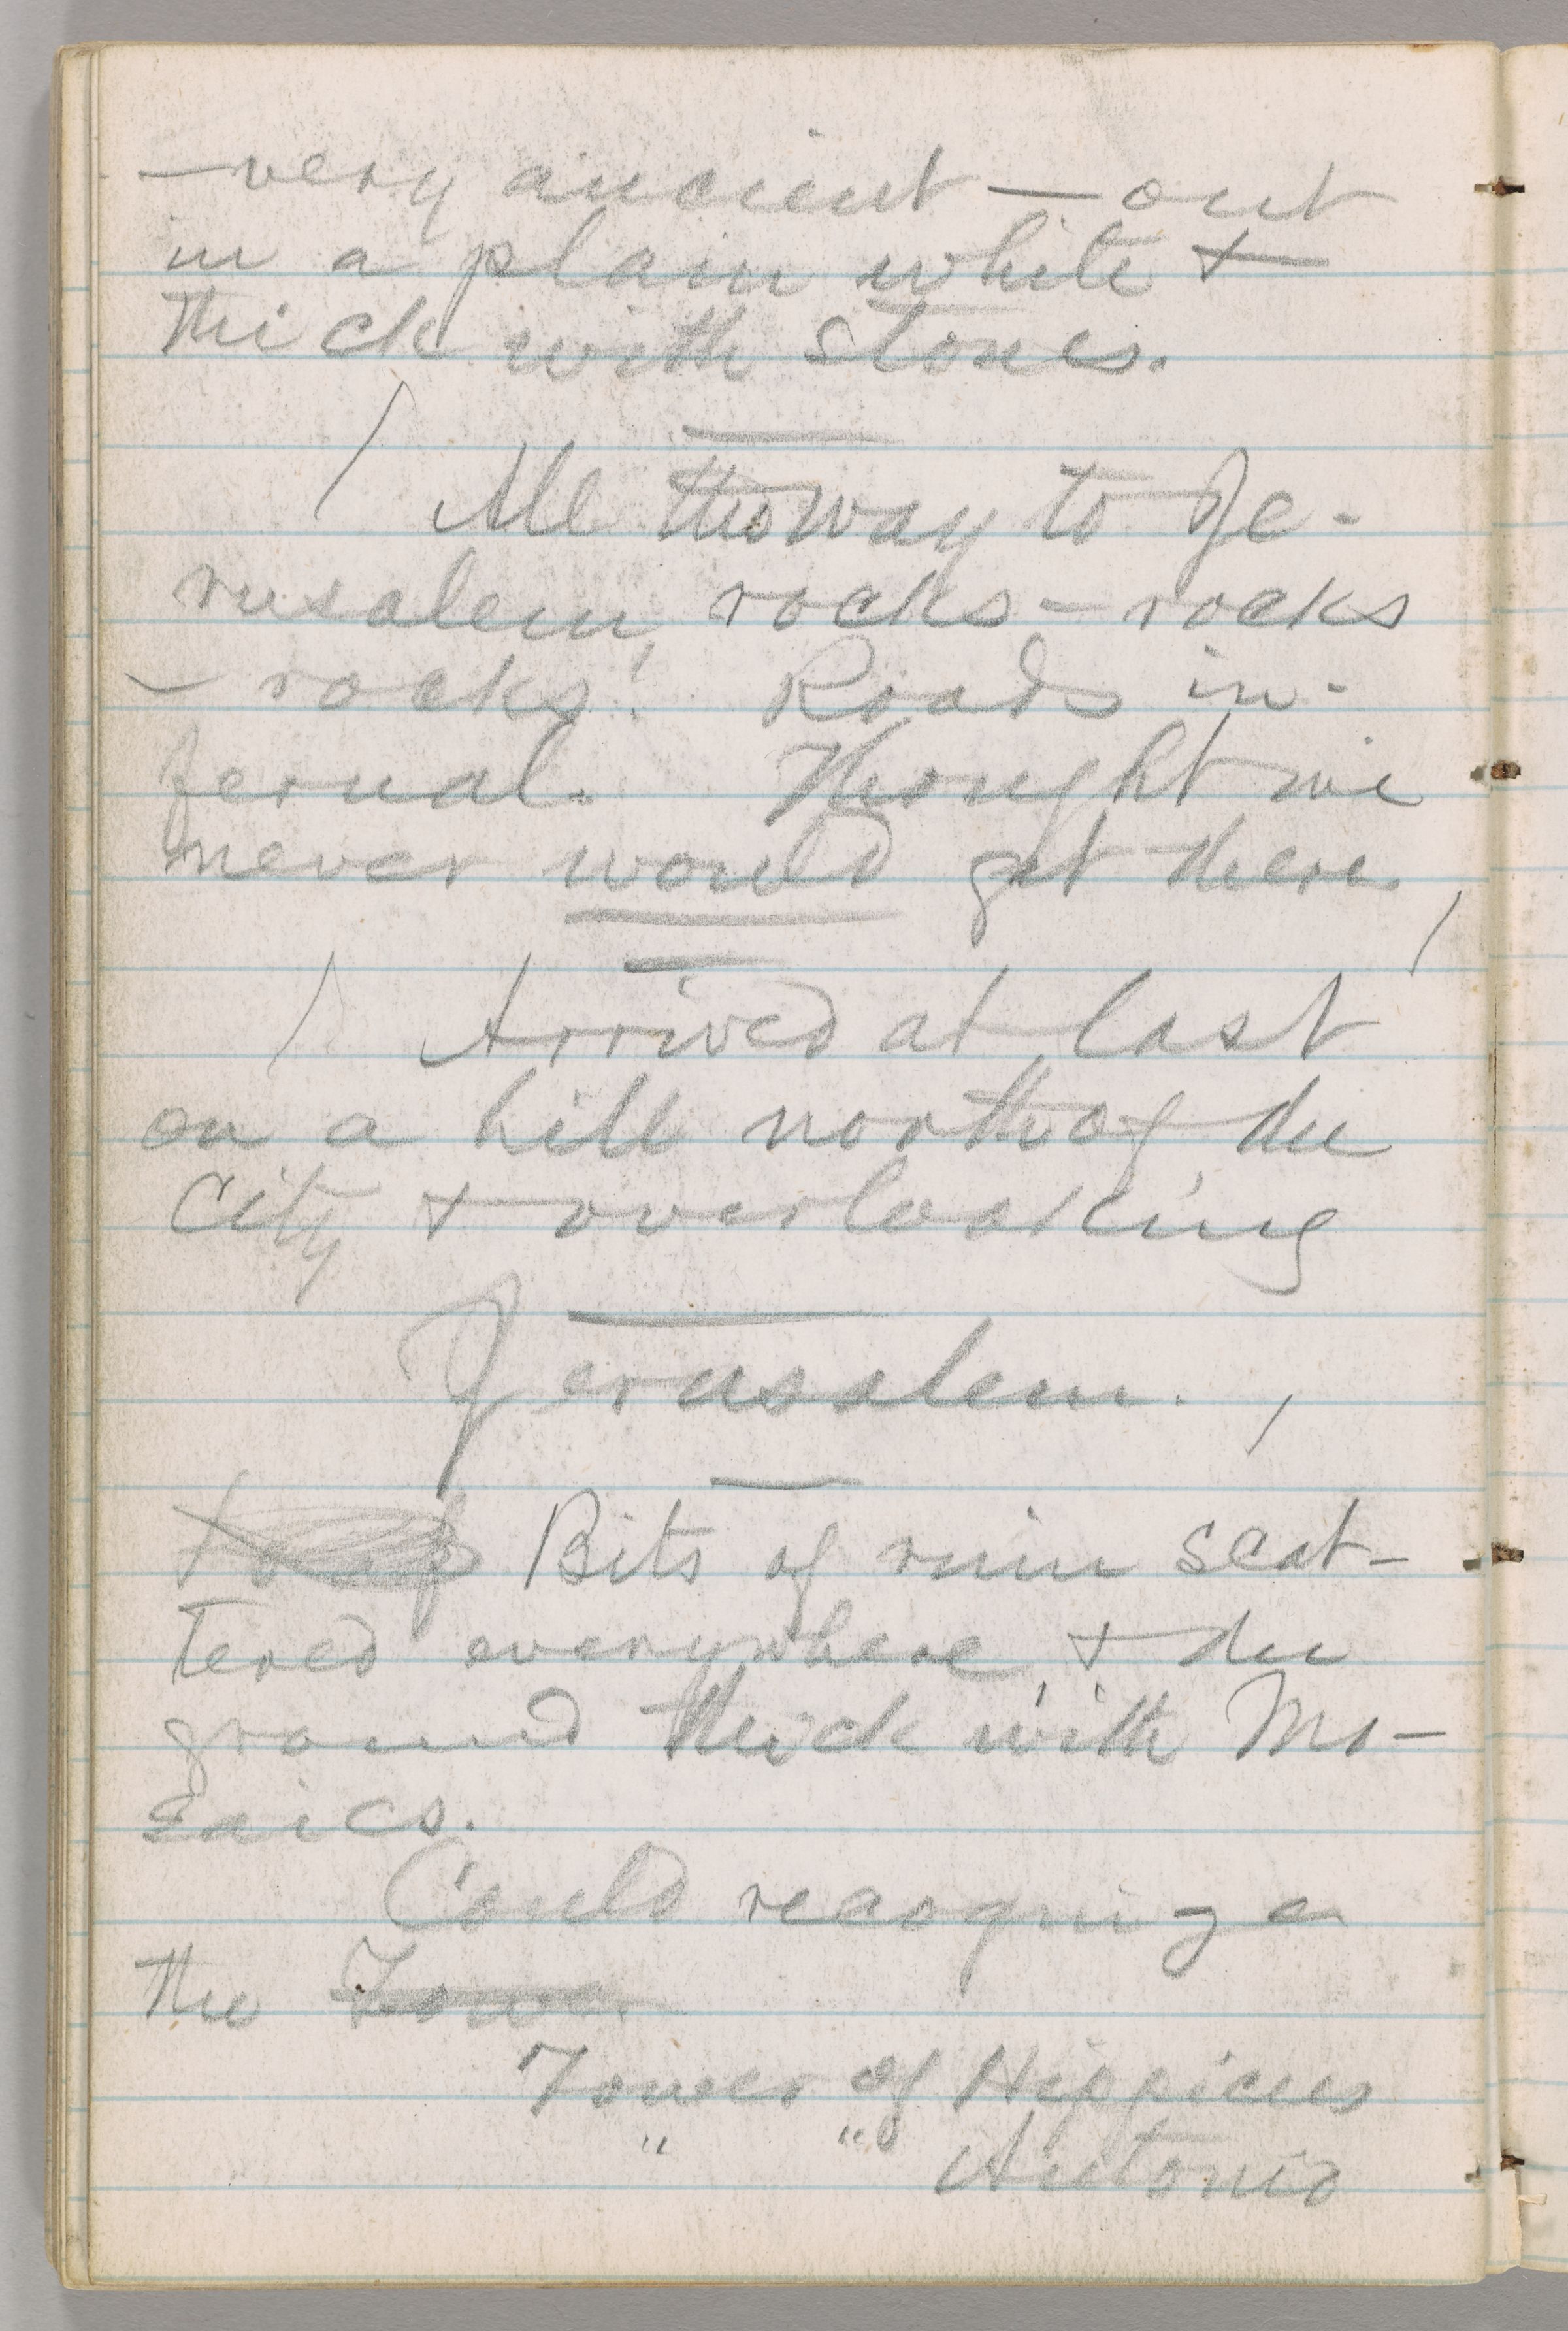 —very ancient — out
in a plain white +
thick with stones.
All the way to Je-
rusalem, rocks — rocks
— rocks! Roads in-
fernal. Thought we
never would get there
Arrived at last
on a hill north of the
City + overlooking
Jerusalem.
Bits of ruin scat-
tered everywhere, + the
ground thick with Mo-
zaics.
Could recognize
the Tower
Tower of Hippicus
" " Antonio